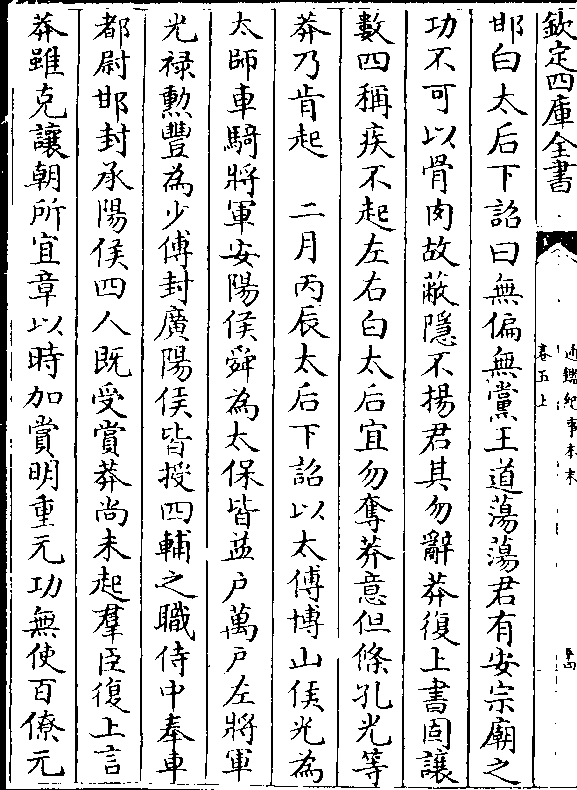 欽定四庫全書
通鑑紀事本末
卷五上
邯白太后下詔曰無偏無黨王道蕩蕩君有安宗廟之
功不可以骨肉故蔽隱不揚君其勿辭莽復上書固讓
數四稱疾不起左右白太后宜勿奪莽意但條孔光等
莽乃肯起　二月丙辰太后下詔以太傅博山侯光為
太師車騎將軍安陽侯舜為太保皆益户萬户左將軍
光禄勲豐為少傅封廣陽侯皆授四輔之職侍中奉車
都尉邯封承陽侯四人既受賞莽尚未起羣臣復上言
莽雖克讓朝所宜章以時加賞明重元功無使百僚元